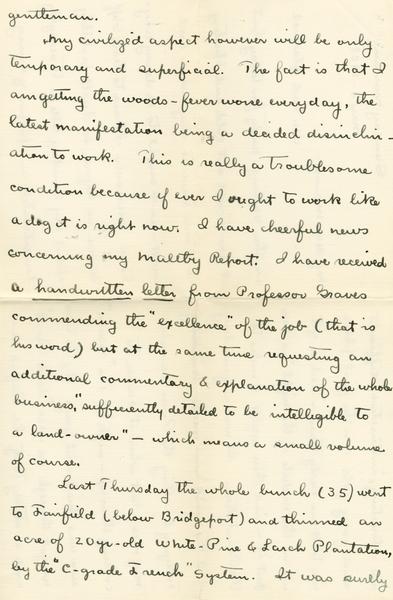 gentleman.
My civilized aspect however will be only
temporary and superficial. The fact is that I
am getting the woods-fever worse everyday, the
latest manifestation being a decided disinclin-
ation to work. This is really a troublesome
condition because if ever I ought to work like
a dog it is right now. I have cheerful news
concerning my Maltby Report. I have received
a handwritten letter from Professor Graves
commending the "excellence" of the job (that is
his word) but at the same time requesting an
additional commentary & explanation of the whole
business, "sufficiently detailed to be intellegible to
a land-owner" – which means a small volume
of course.
Last Thursday the whole bunch (35) went
to Fairfield (below Bridgeport) and thinned an
acre of 20yr-old White-Pine & Larch Plantation,
by the "C-grade French" System. It was surely